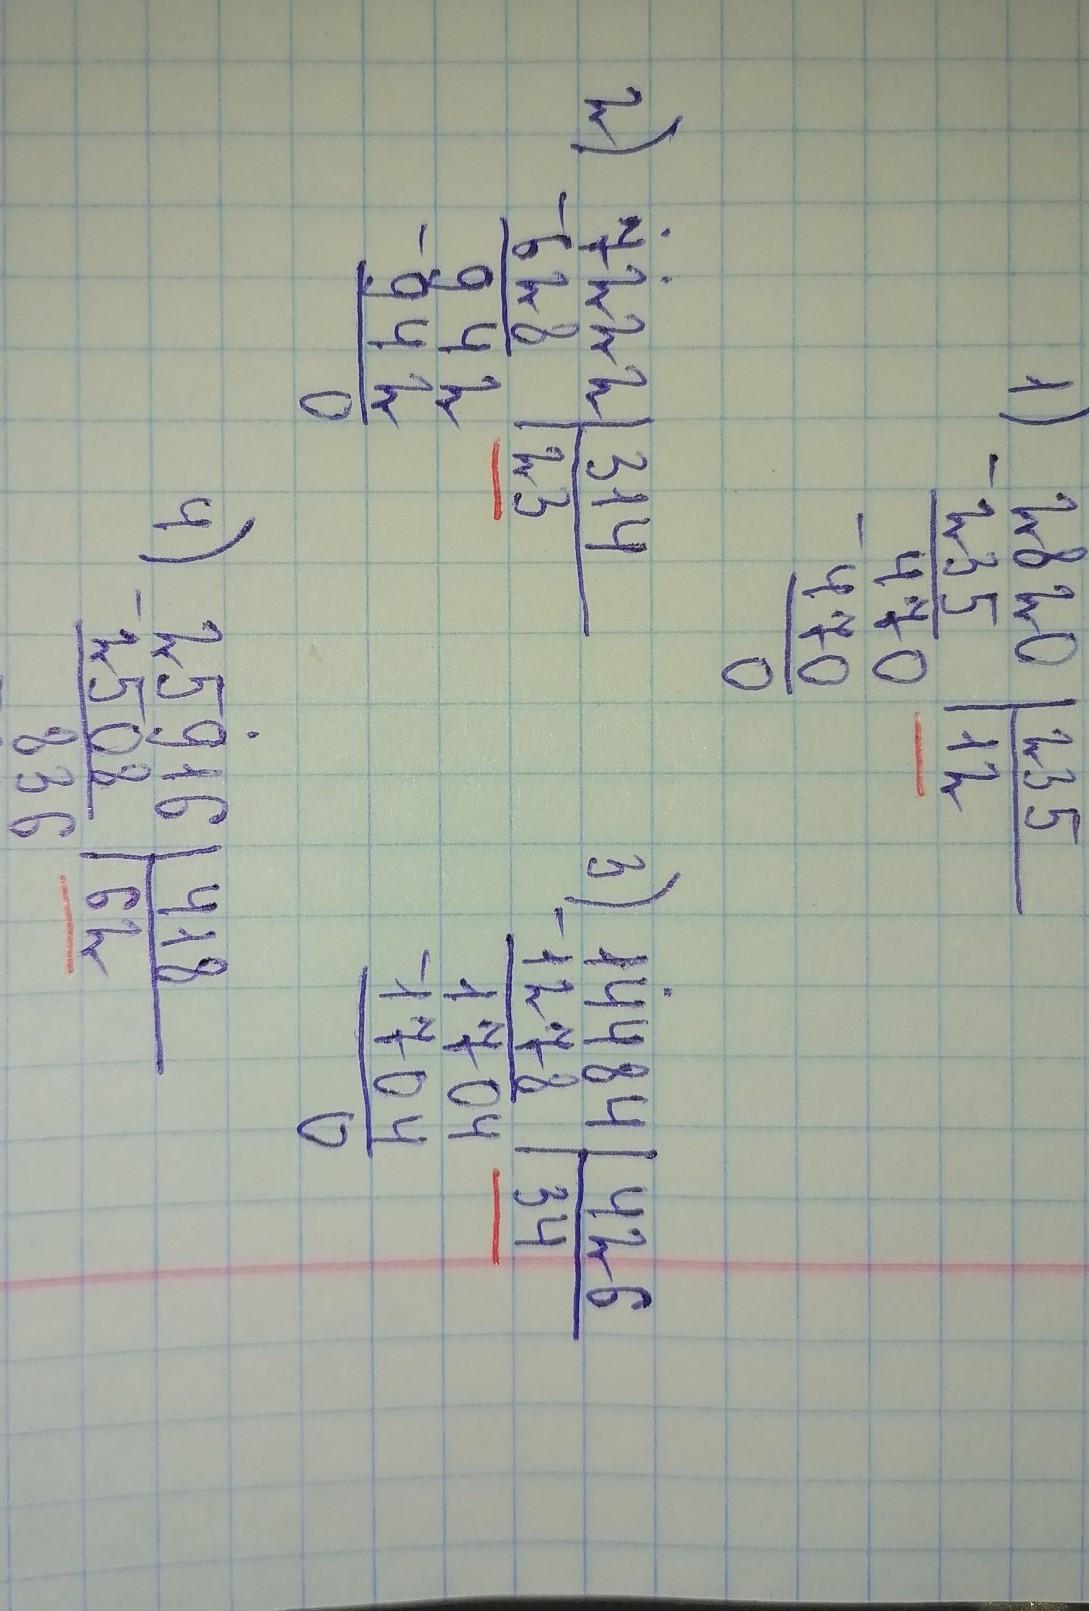 1) 2820 | 235
- 235 | 12
470
- 470
0
2) 7222 | 314
- 628 | 23
942
- 942
0
3) 14484 | 426
- 1278 | 34
1704
- 1704
0
4) 25916 | 418
- 2508 | 62
836